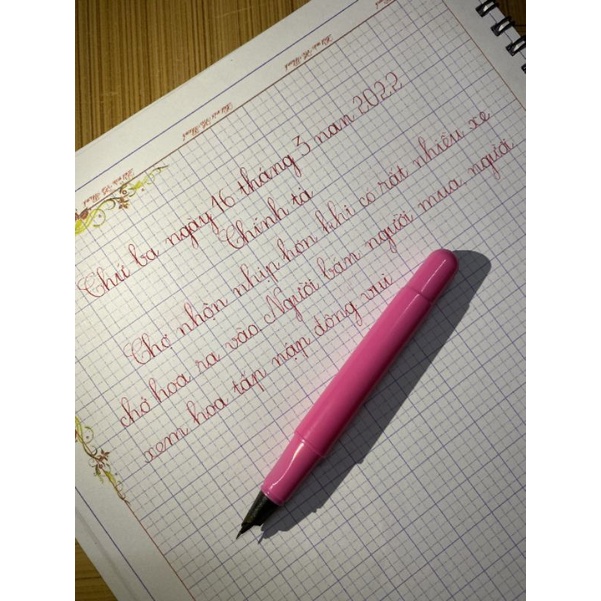 Thứ ba ngày 16 tháng 3 năm 2022
Chính tả
Chợ nhộn nhịp hơn khi có rất nhiều xe
chở hoa ra vào Người bán người mua, người
xem hoa tấp nập đông vui